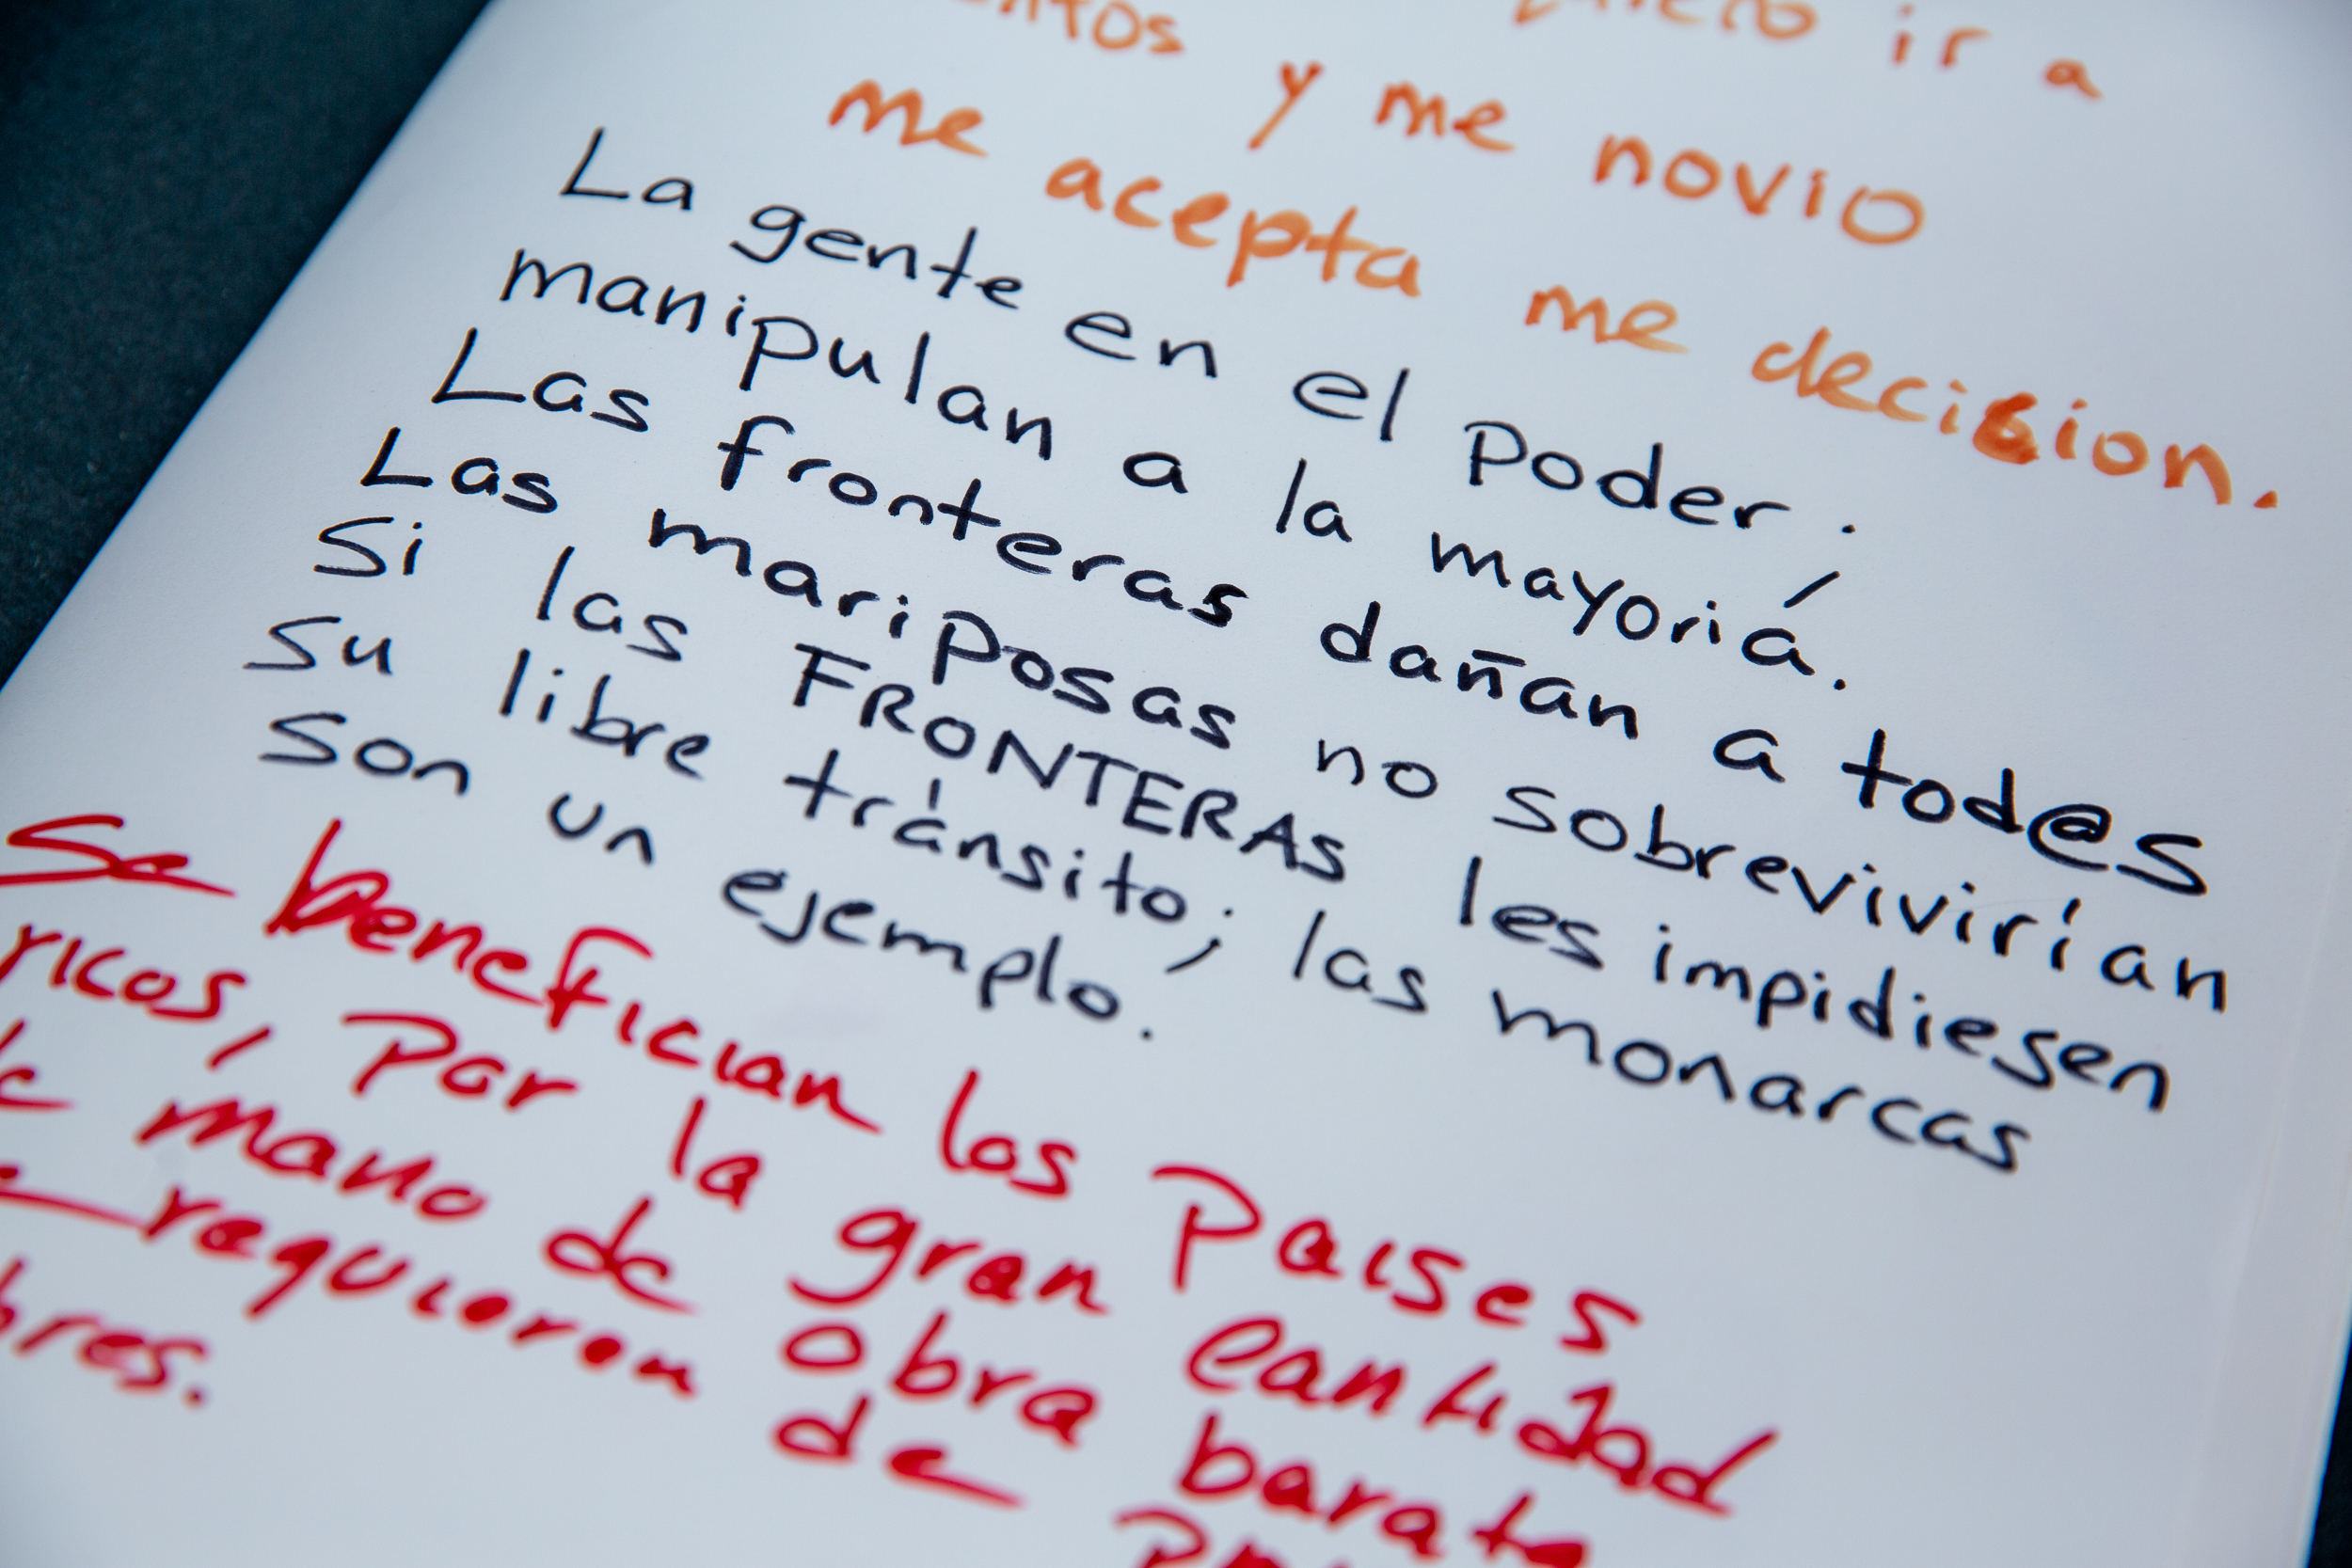 ir a
y me novio
me acepta me decision.
La gente en el poder;
manipulan a la mayoriá.
Las fronteras dañan a tod@s
Las mariposas no sobrevivirían
Si las FRONTERAS les impidiesen
su libre tránsito; las monarcas
son un ejemplo.
Se benefician los Paises
ricos, Por la gran cantidad
de mano de obra barata
requieren de